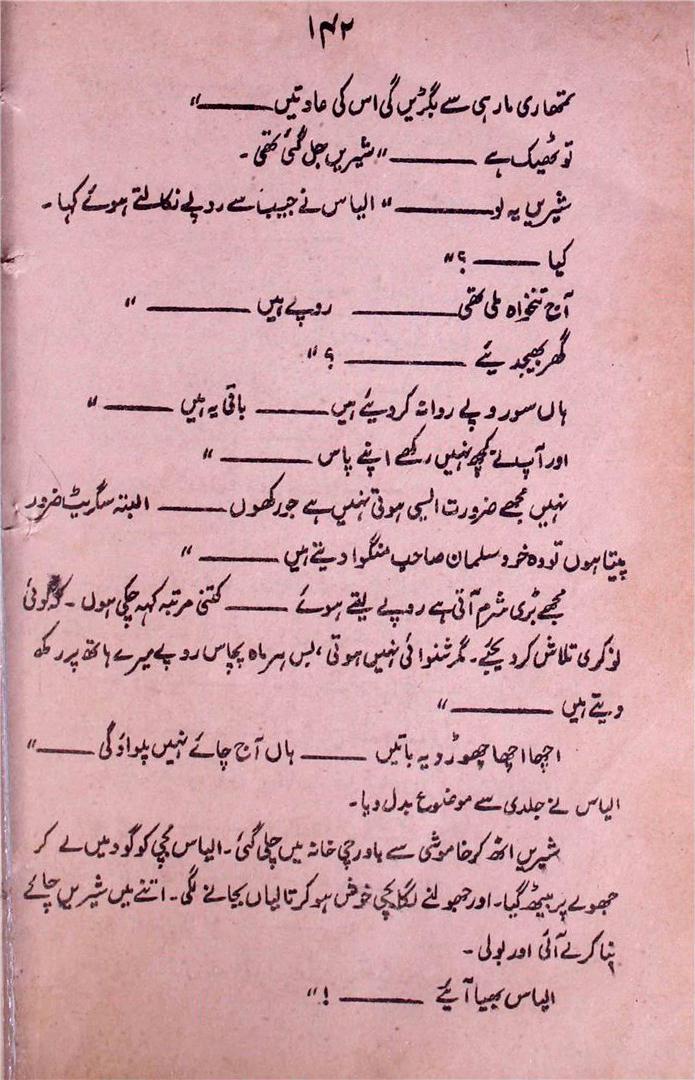 ۱۴۲
تمھاری مار ہی سے بگڑیں گی اس کی عادتیں ——"
تو ٹھیک ہے ——" شیریں جل گئی تھی۔
شیریں یہ لو ——" الیاس نے جیب سے روپے نکالتے ہوئے کہا۔
کیا —— ؟"
آج تنخواہ ملی تھی —— روپے ہیں —— "
گھر بھیجدیئے —— ؟"
ہاں سو روپے روانہ کر دیئے ہیں —— باقی یہ ہیں —— "
اور آپ نے کچھ نہیں رکھے اپنے پاس —— "
نہیں مجھے ضرورت ایسی ہوتی نہیں ہے جو رکھوں —— البتہ سگریٹ ضرور
پیتا ہوں تو وہ خود سلمان صاحب منگوا دیتے ہیں —— "
مجھے بڑی شرم آتی ہے روپے لیتے ہوئے —— کتنی مرتبہ کہہ چکی ہوں ۔ کوئی
نوکری تلاش کر دیجئے۔ مگر شنوائی نہیں ہوتی، بس ہر ماہ پچاس روپے میرے ہاتھ پر رکھ
دیتے ہیں —— "
اچھا اچھا چھوڑو یہ باتیں —— ہاں آج چائے نہیں پلواؤ گی ——"
الیاس نے جلدی سے موضوع بدل دیا۔
شیریں اٹھ کر خاموشی سے باورچی خانہ میں چلی گئی۔ الیاس بچی کو گود میں لے کر
جھولے پر بیٹھ گیا۔ اور جھولنے لگا بچی خوش ہو کر تالیاں بجانے لگی۔ اتنے میں شیریں چائے
بنا کر لے آئی اور بولی۔
الیاس بھیا آیئے —— !"